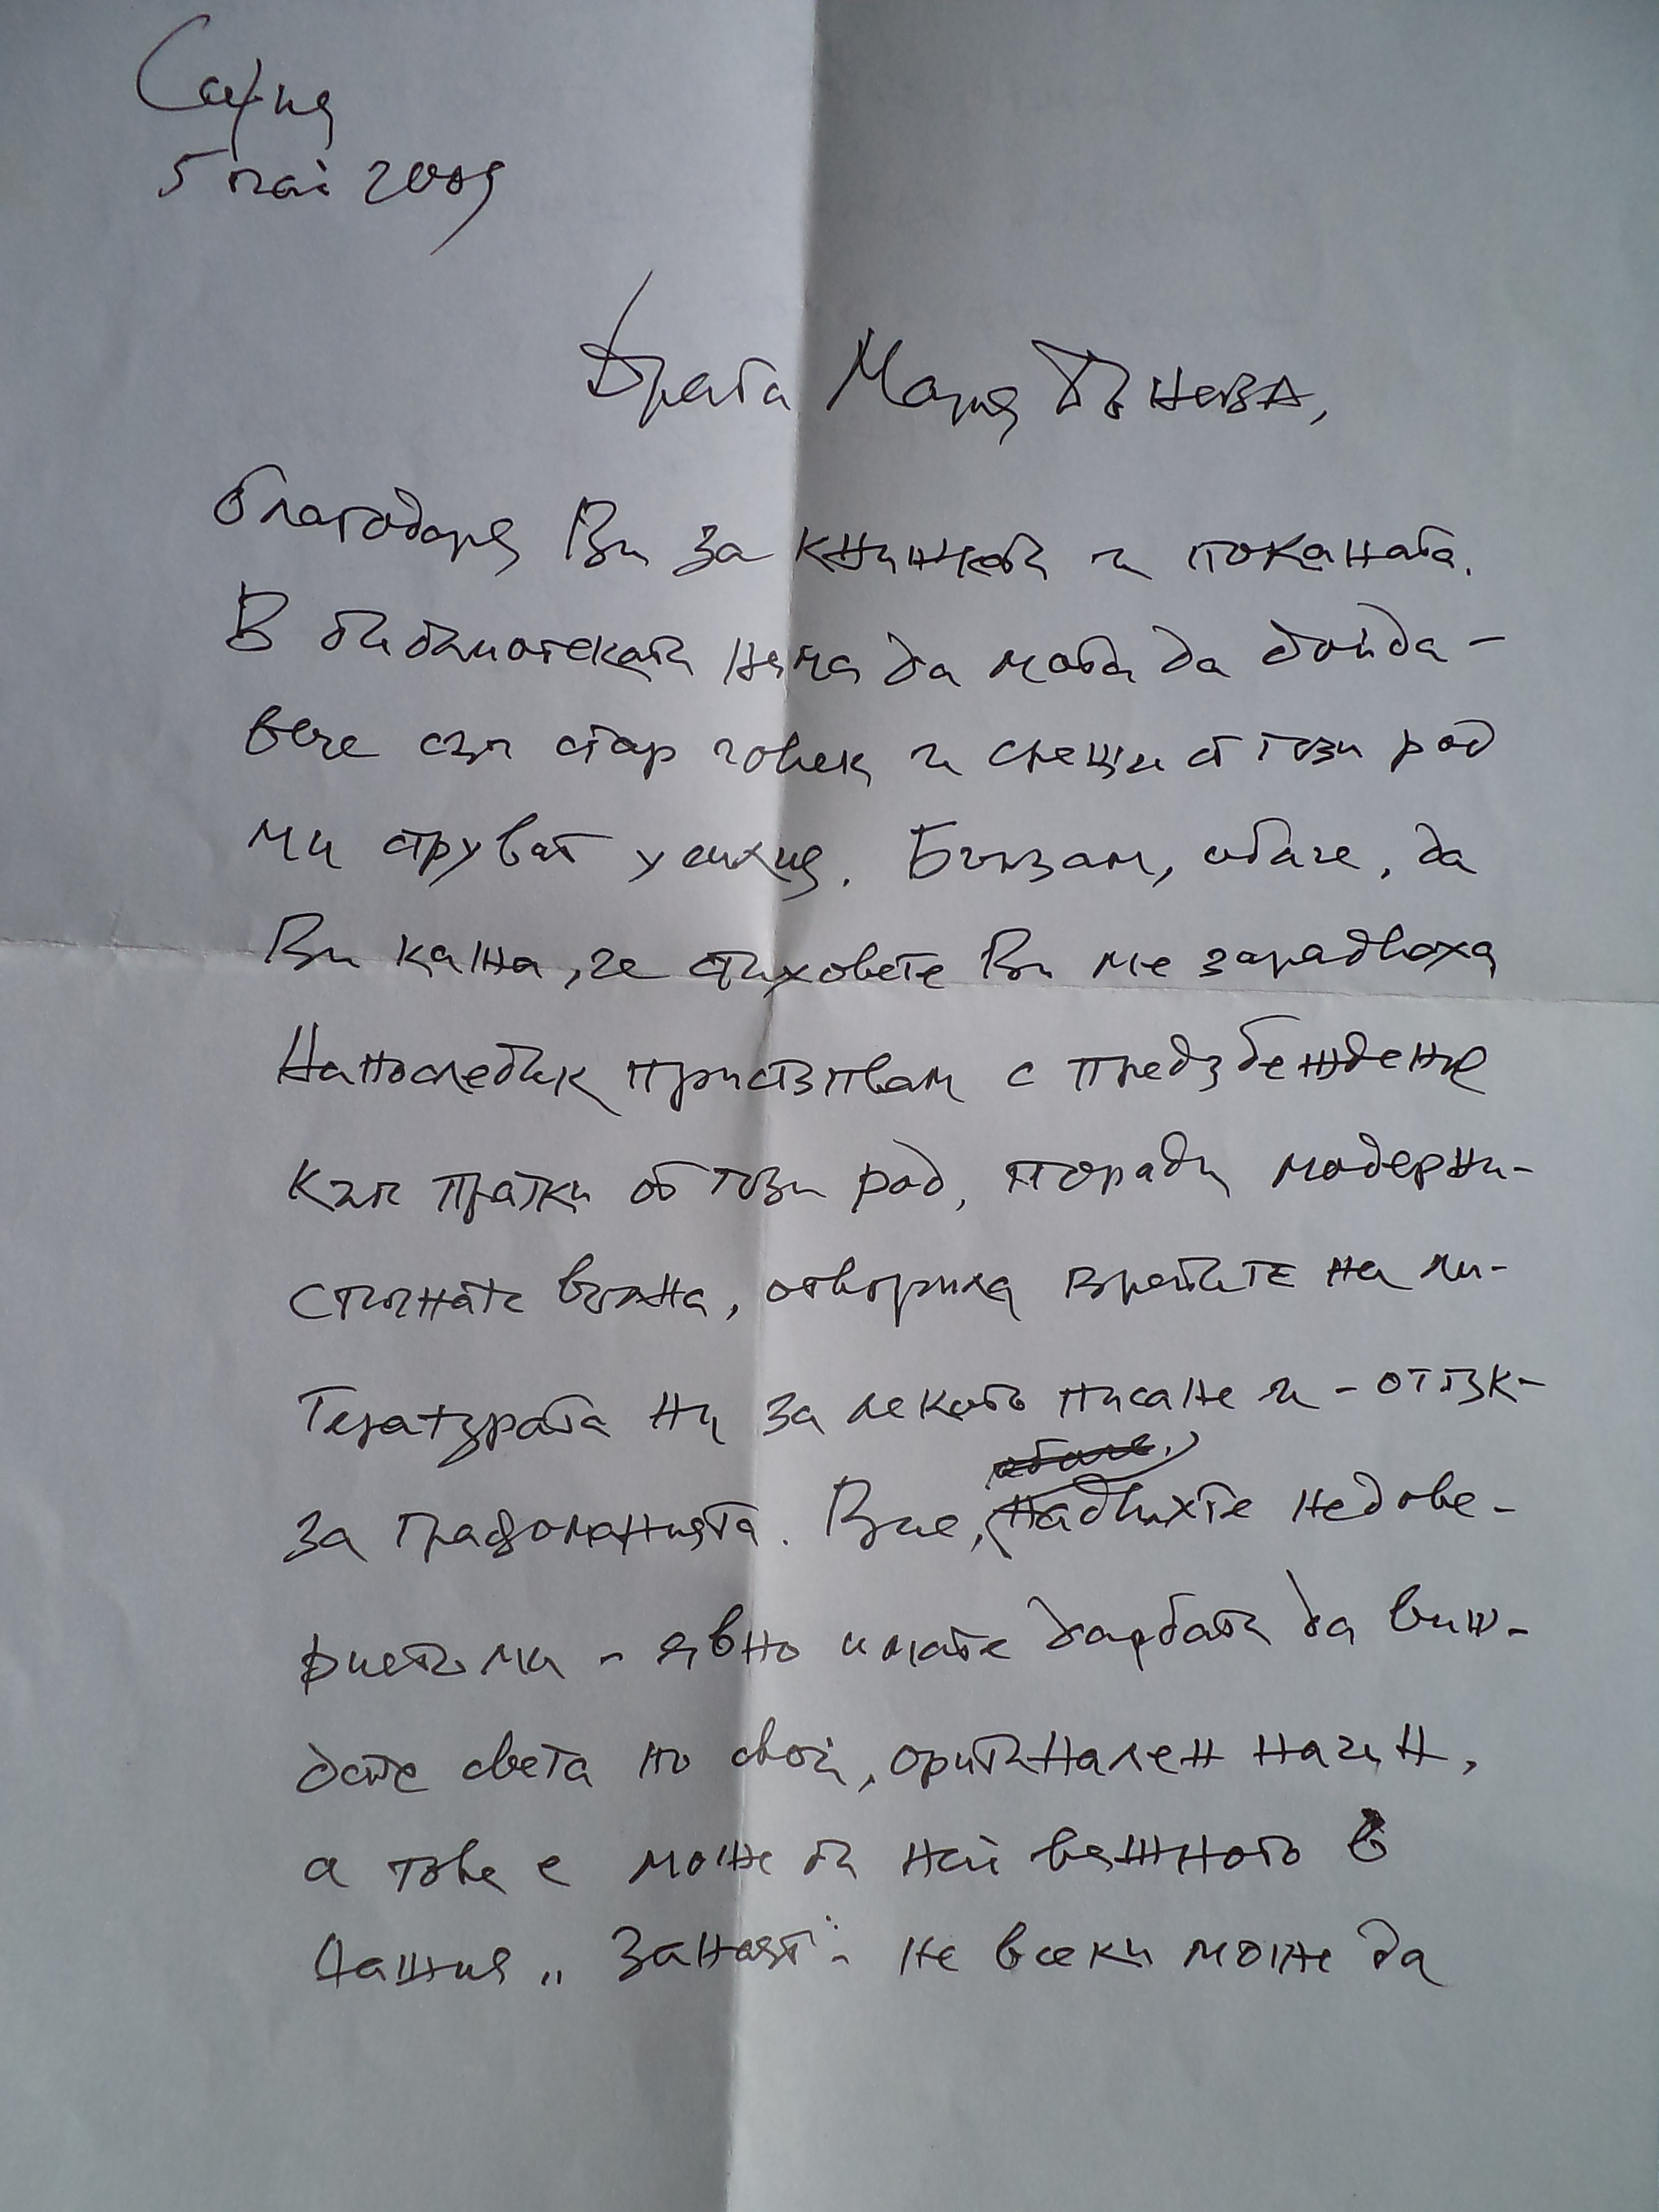 София
5 май 2009
Драга Мария Донева,
благодаря Ви за книжката и поканата.
В библиотеката няма да мога да дойда –
вече съм стар човек и срещи от този род
ми струват усилия. Бързам, обаче, да
Ви кажа, че стиховете Ви ме зарадваха
Напоследък пристъпвам с предубеждение
към пратки от този род, поради модерни-
стичната вълна, отворила вратите на ли-
тературата ни за лекото писане и – оттук –
за графоманията. Вие, надвихте недове-
рието ми – явно имате дарбата да виж-
дате света по свой, оригинален начин,
а това е може би най важното в
нашия „занаят“ – не всеки може да